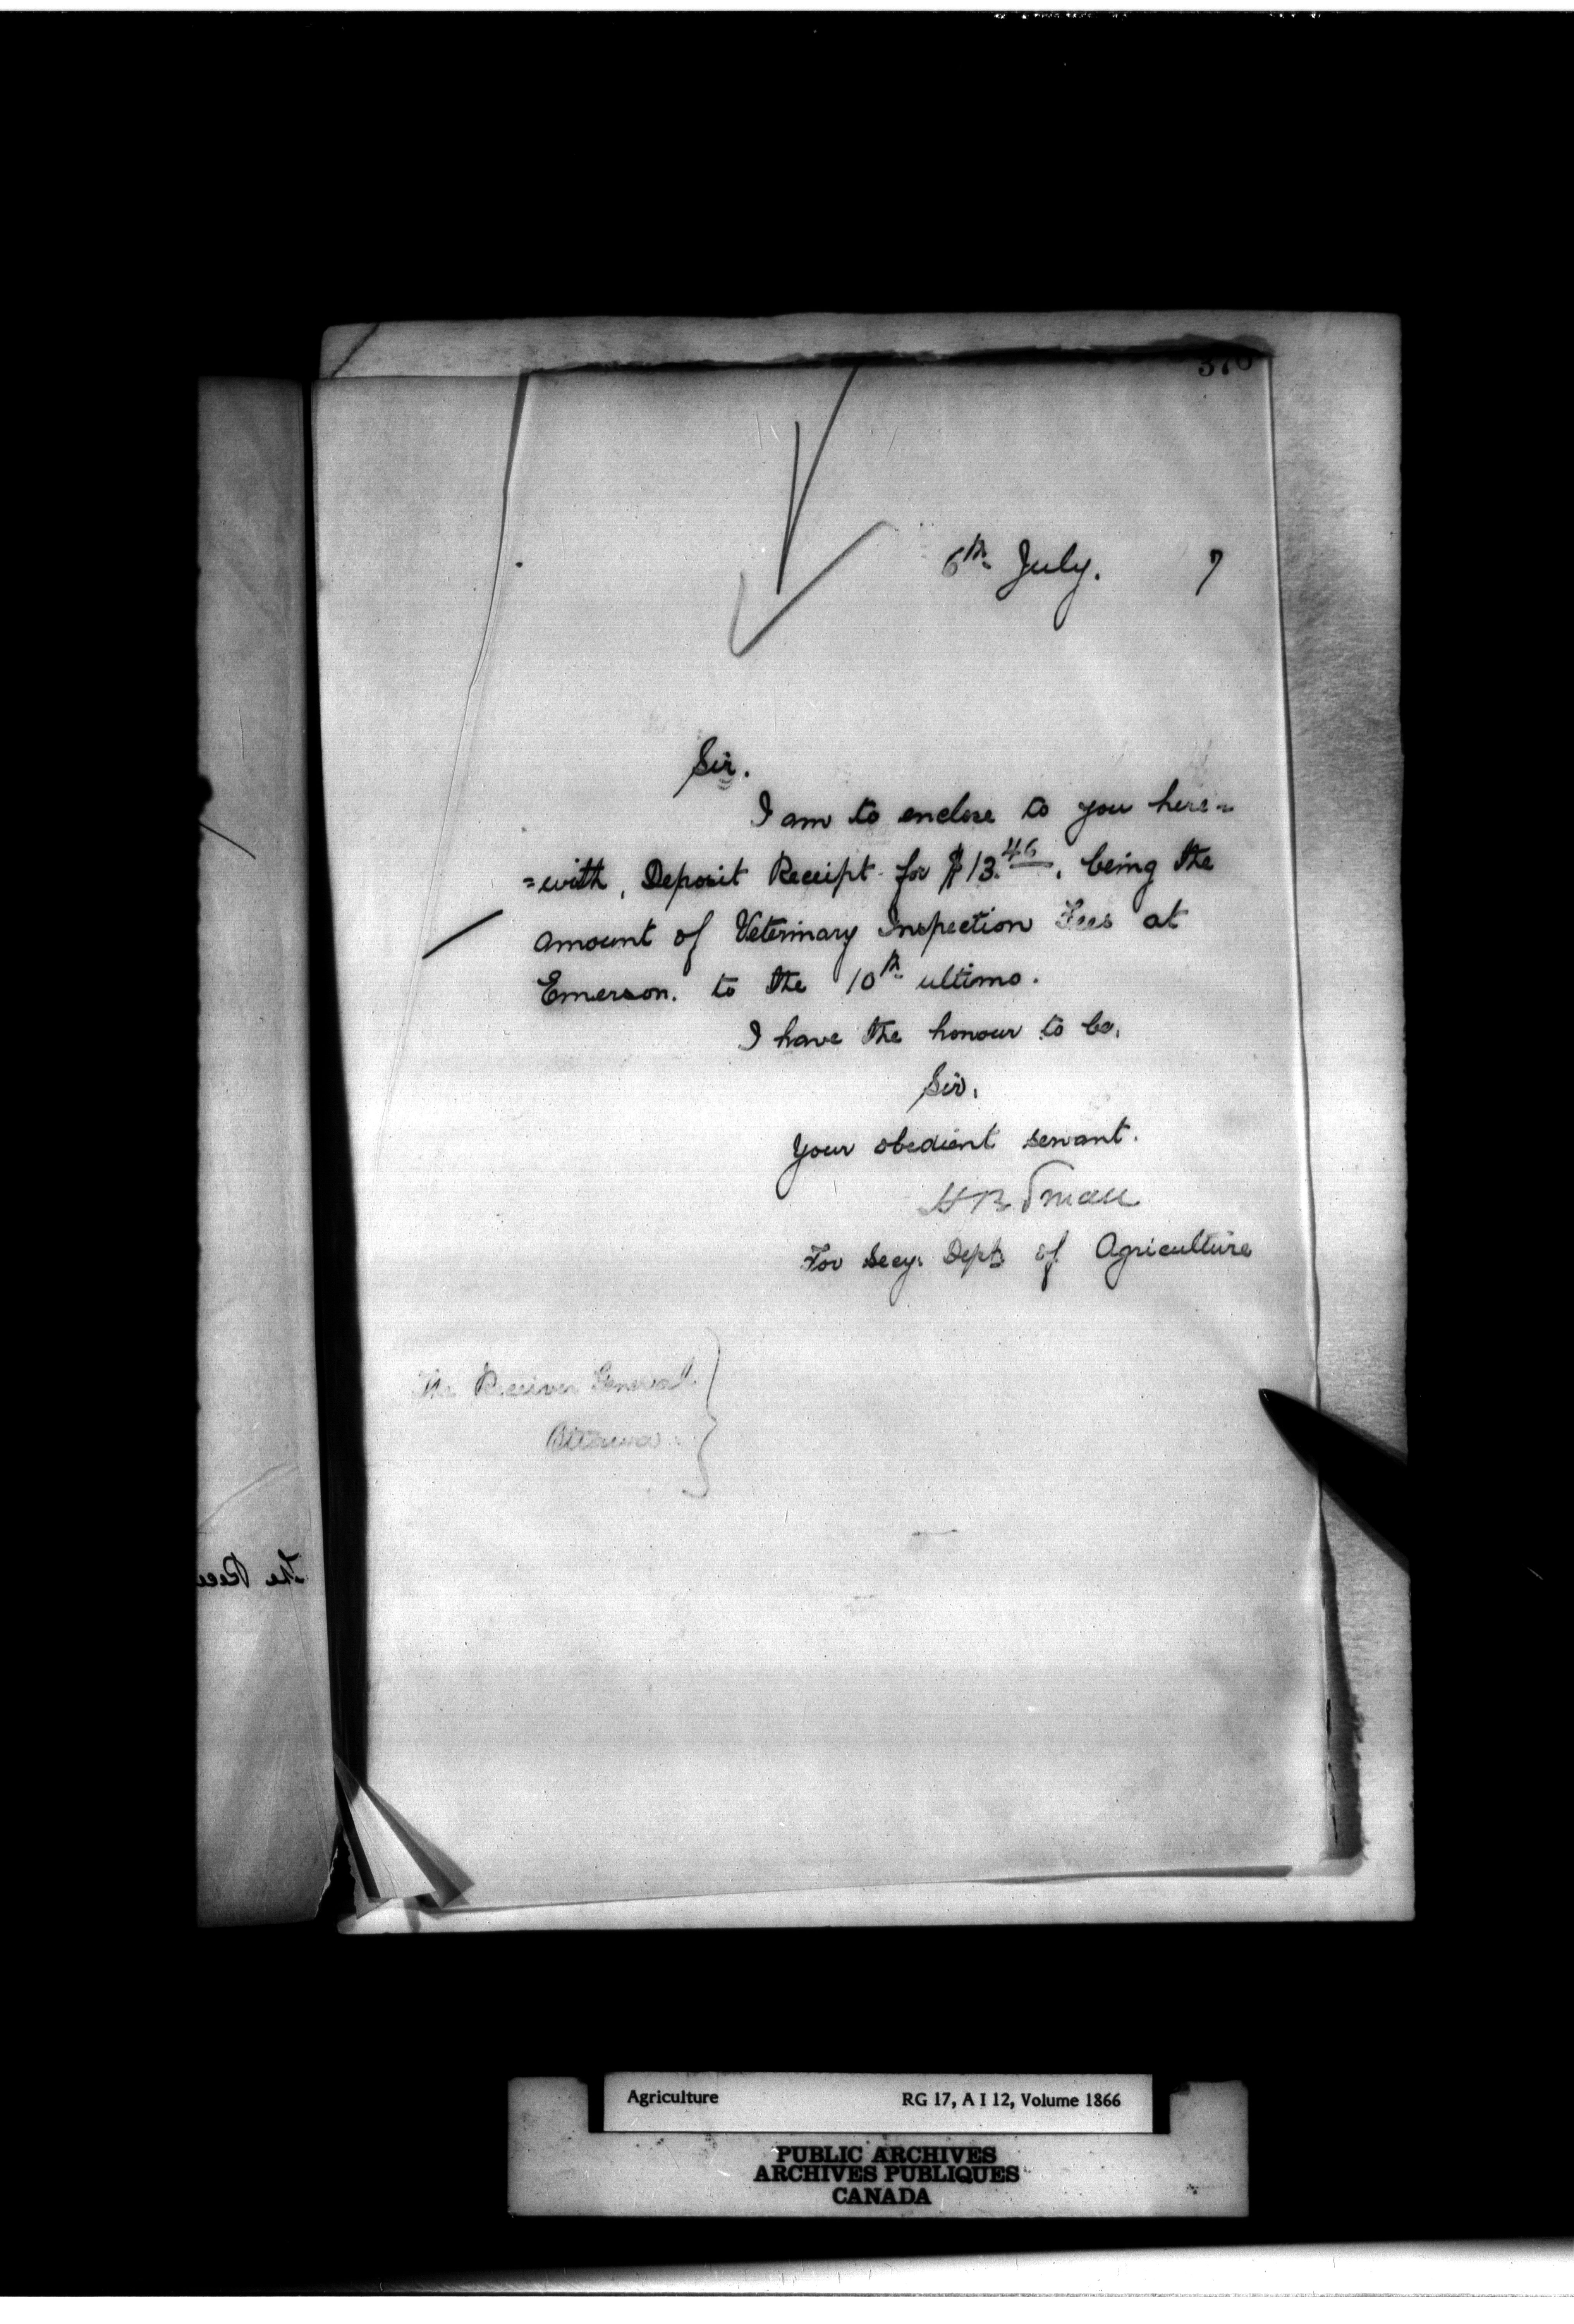 370
6th July. 7
Sir.
I am to enclose to you here=
=with, Deposit Receipt for $13.46, being the
amount of Veterinary Inspection Fees at
Emerson. to the 10th ultimo.
I have the honour to be,
Sir,
Your obedient servant.
H B Small
For Secy. Dept. of Agriculture
The Receiver General
Ottawa.
The Rece
Agriculture RG 17, A I 12, Volume 1866
PUBLIC ARCHIVES
ARCHIVES PUBLIQUES
CANADA